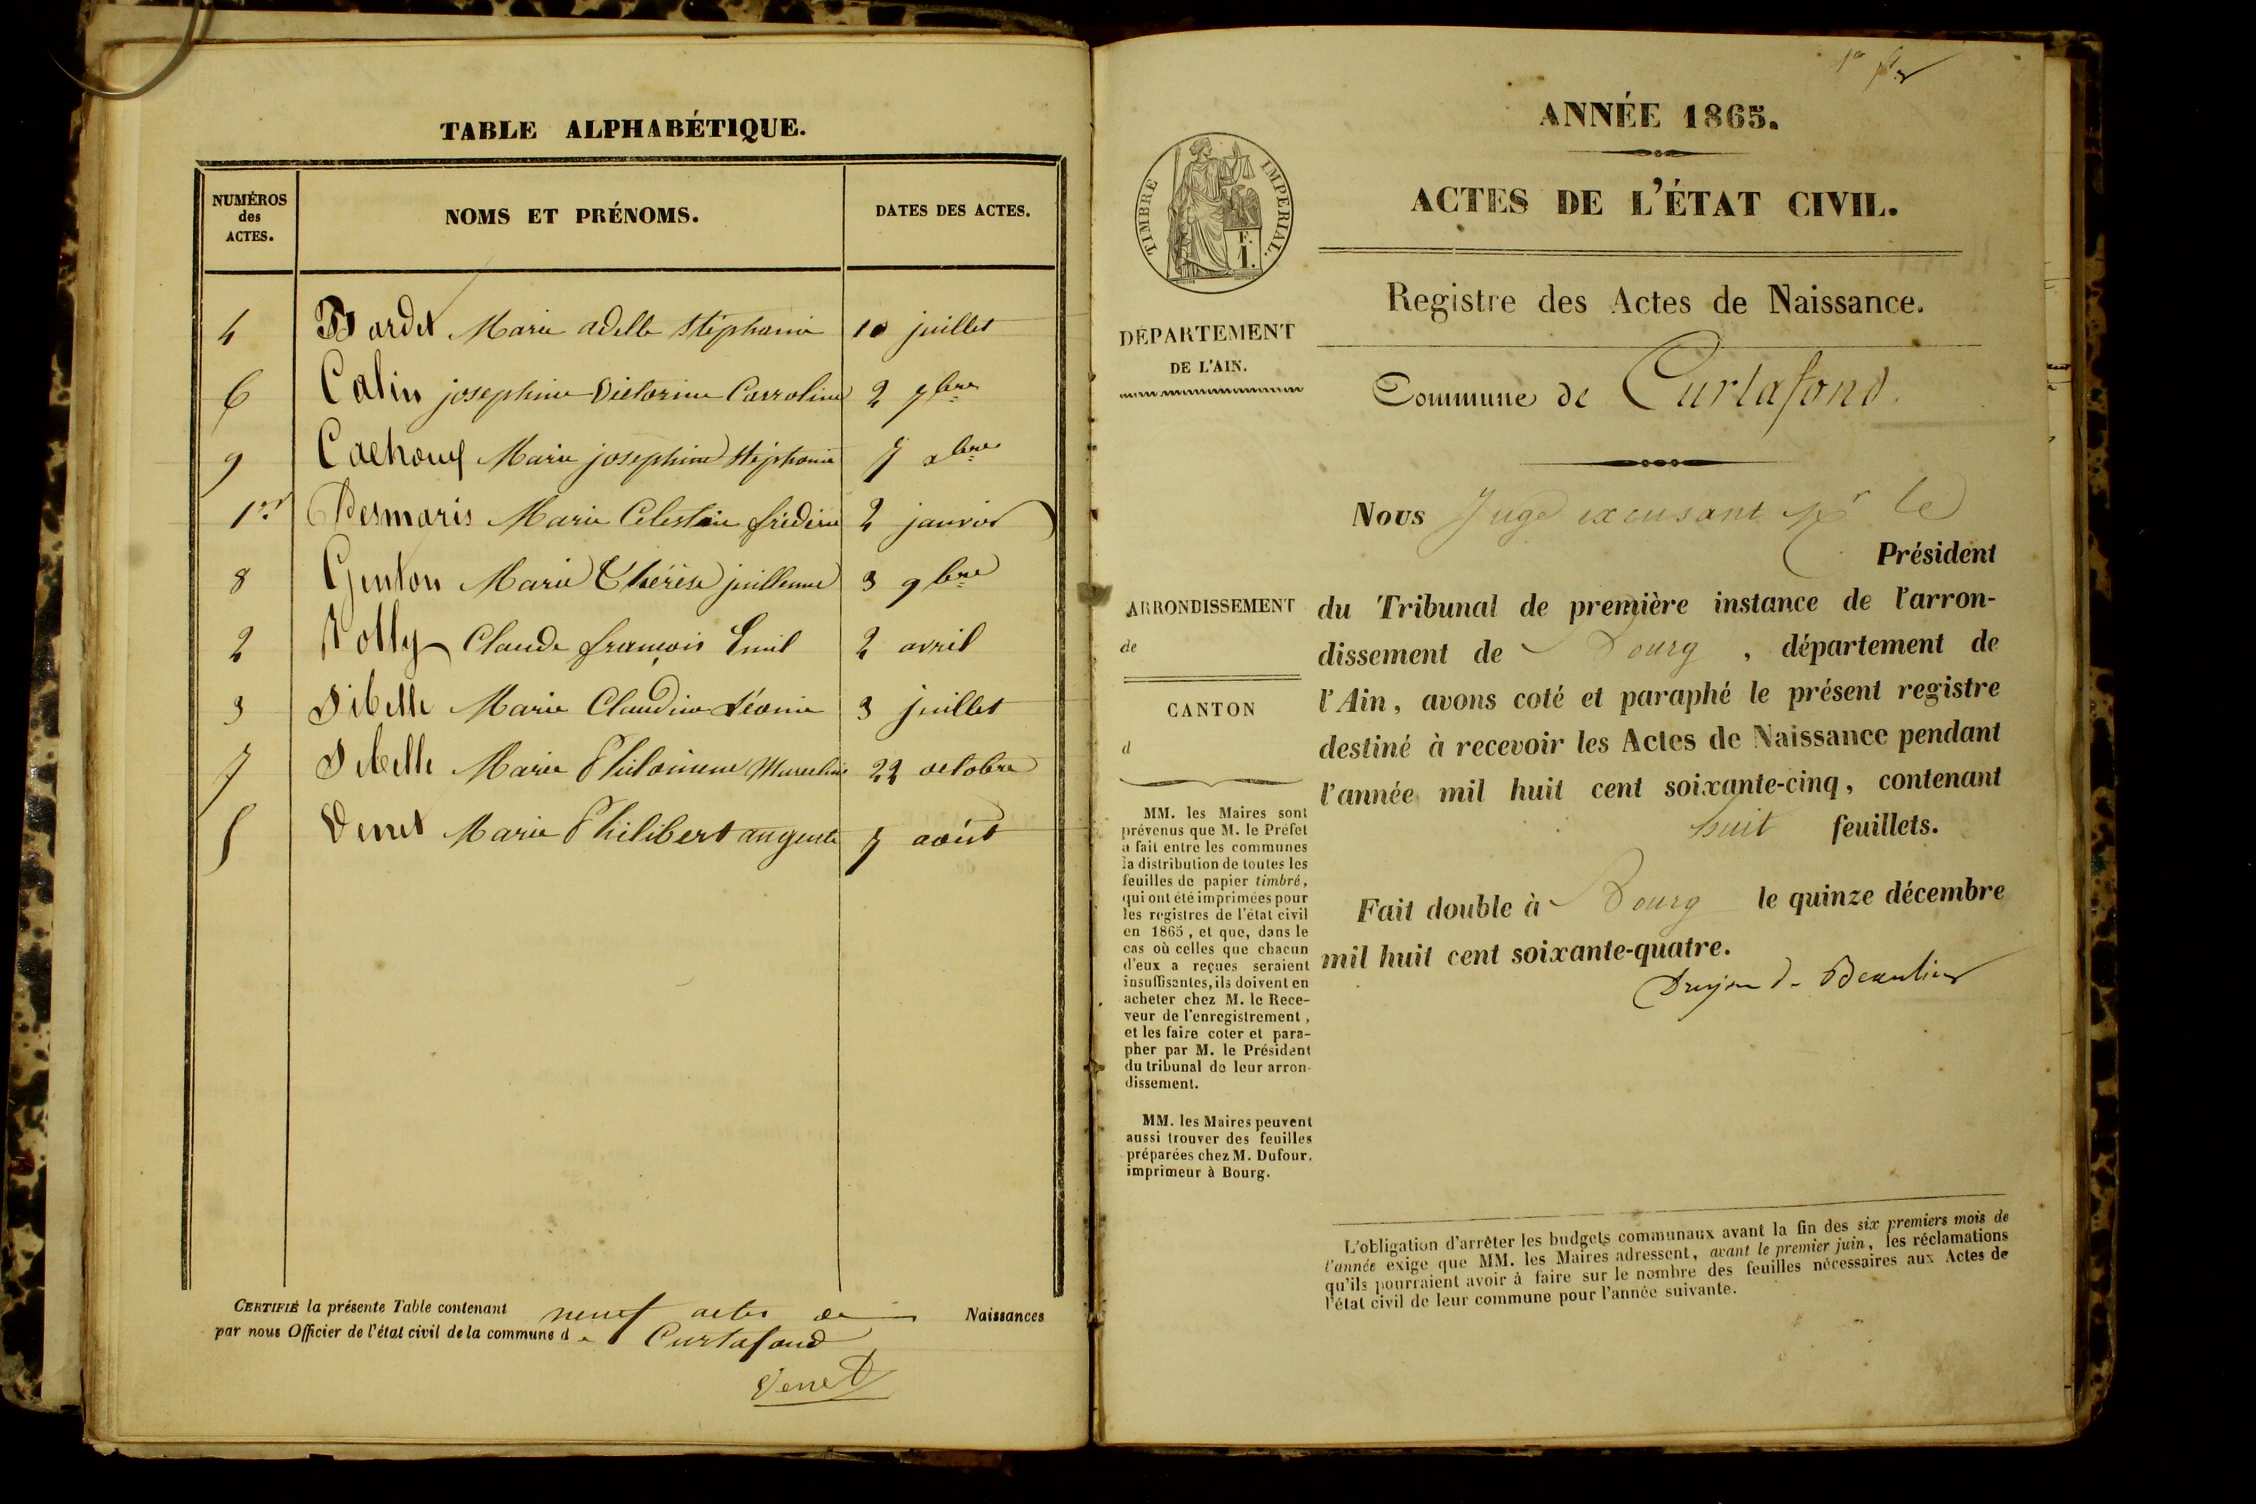 TABLE ALPHABÉTIQUE.
NUMÉROS
des
ACTES.
NOMS ET PRÉNOMS.
DATES DES ACTES.
4 Bardet Marie adelle Stéphanie 10 juillet
6 Calin josephine Victorine Carroline 2 9bre
9 Marie josephine Stéphanie 7 xbre
1er Desmaris Marie Celestine 2 janvier
8 Genton Marie Thérèse juillenne 3 9bre
2 Claude françois Emil 2 avril
3 Sibelle Marie Claudine Léonie 3 juillet
7 Sibelle Marie Philomene Marceline 22 octobre
5 Venet Marie Philibert auguste 7 août
CERTIFIÉ la présente Table contenant neuf actes de Naissances
par nous Officier de l'état civil de la commune de Curtafond
Venet
ANNÉE 1865.
ACTES DE L'ÉTAT CIVIL.
TIMBRE IMPERIAL.
F.
1.
Registre des Actes de Naissance.
DÉPARTEMENT
DE L'AIN.
Commune de Curtafond.
Nous Juge excusant Mr le
Président
ARRONDISSEMENT
de
CANTON
d
du Tribunal de première instance de l'arron-
dissement de Bourg, département de
l'Ain, avons coté et paraphé le présent registre
destiné à recevoir les Actes de Naissance pendant
l'année mil huit cent soixante-cinq, contenant
huit feuillets.
Fait double à Bourg le quinze décembre
mil huit cent soixante-quatre.
Drujon de Beaulieu
MM. les Maires sont
prévenus que M. le Préfet
a fait entre les communes
la distribution de toutes les
feuilles de papier timbré,
qui ont été imprimées pour
les registres de l'état civil
en 1865, et que, dans le
cas où celles que chacun
d'eux a reçues seraient
insuffisantes, ils doivent en
acheter chez M. le Rece-
veur de l'enregistrement,
et les faire coter et para-
pher par M. le Président
du tribunal de leur arron-
dissement.
MM. les Maires peuvent
aussi trouver des feuilles
préparées chez M. Dufour,
imprimeur à Bourg.
L'obligation d'arrêter les budgets communaux avant la fin des six premiers mois de
l'année exige que MM. les Maires adressent, avant le premier juin, les réclamations
qu'ils pourraient avoir à faire sur le nombre des feuilles nécessaires aux Actes de
l'état civil de leur commune pour l'année suivante.